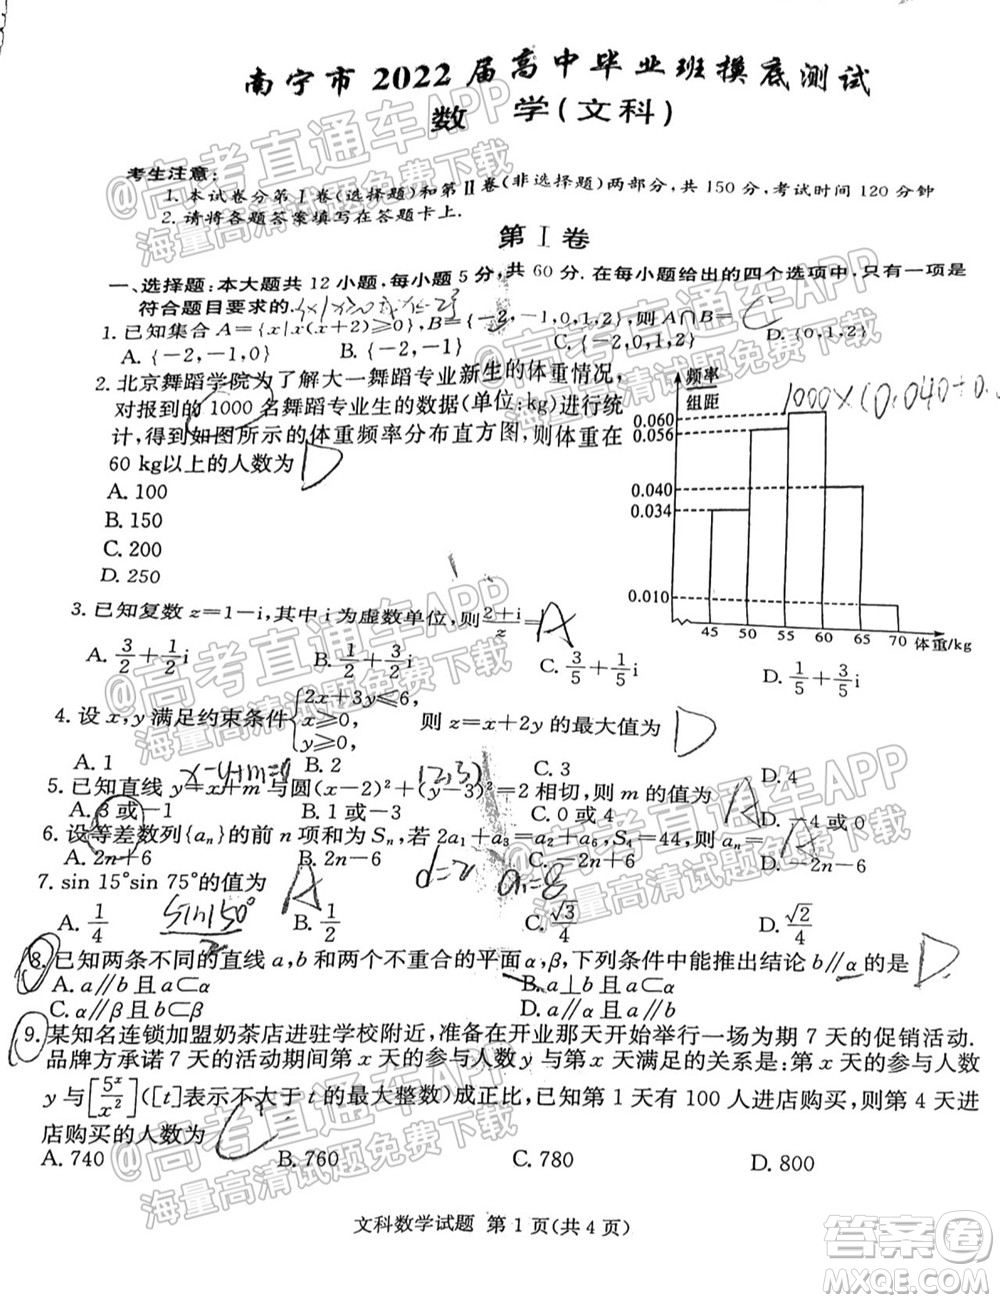 南宁市 2022 届高中毕业班摸底测试
数 学(文科)
考生注意:
1. 本试卷分第Ⅰ卷(选择题)和第Ⅱ卷(非选择题)两部分,共 150 分,考试时间 120 分钟
2. 请将各题答案填写在答题卡上.
第 Ⅰ 卷
一、选择题:本大题共 12 小题,每小题 5 分,共 60 分. 在每小题给出的四个选项中,只有一项是
符合题目要求的.
{x|x≥0或x≤-2}
1. 已知集合 A={x|x(x+2)≥0},B={-2,-1,0,1,2},则 A∩B= C
A. {-2,-1,0} B. {-2,-1} C. {-2,0,1,2} D. {0,1,2}
2. 北京舞蹈学院为了解大一舞蹈专业新生的体重情况,
对报到的 1000 名舞蹈专业生的数据(单位:kg)进行统
计,得到如图所示的体重频率分布直方图,则体重在
60 kg以上的人数为 D
A. 100
B. 150
C. 200
D. 250
频率
组距
1000×(0.040+0.
0.060
0.056
0.040
0.034
0.010
45 50 55 60 65 70 体重/kg
3. 已知复数 z=1-i,其中 i 为虚数单位,则 (2+i)/z = A
A. 3/2+1/2i B. 1/2+3/2i C. 3/5+1/5i D. 1/5+3/5i
4. 设 x,y 满足约束条件 {2x+3y≤6, x≥0, y≥0, 则 z=x+2y 的最大值为 D
A. 1 B. 2 C. 3 D. 4
x-y+m=0 (2,3)
5. 已知直线 y=x+m 与圆(x-2)²+(y-3)²=2 相切,则 m 的值为 A
A. 3 或-1 B. 1 或-3 C. 0 或 4 D. -4 或 0
6. 设等差数列{aₙ}的前 n 项和为 Sₙ,若 2a₁+a₃=a₂+a₆,S₄=44,则 aₙ= A
A. 2n+6 B. 2n-6 C. -2n+6 D. -2n-6
d=2 a₁=8
7. sin 15°sin 75°的值为 A
A. 1/4 B. 1/2 C. √3/4 D. √2/4
sin150°
2
8. 已知两条不同的直线 a,b 和两个不重合的平面 α,β,下列条件中能推出结论 b∥α 的是 D
A. a∥b 且 a⊂α B. a⊥b 且 a⊂α
C. a∥β 且 b⊂β D. α∥β 且 b⊂β
9. 某知名连锁加盟奶茶店进驻学校附近,准备在开业那天开始举行一场为期 7 天的促销活动.
品牌方承诺 7 天的活动期间第 x 天的参与人数 y 与第 x 天满足的关系是:第 x 天的参与人数
y 与[5ˣ/x²]([t]表示不大于 t 的最大整数)成正比,已知第 1 天有 100 人进店购买,则第 4 天进
店购买的人数为 C
A. 740 B. 760 C. 780 D. 800
文科数学试题 第 1 页(共 4 页)
@高考直通车APP
海量高清试题免费下载
@高考直通车APP
海量高清试题免费下载
@高考直通车APP
海量高清试题免费下载
@高考直通车APP
海量高清试题免费下载
@高考直通车APP
海量高清试题免费下载
@高考直通车APP
海量高清试题免费下载
答案圈
MXQE.COM